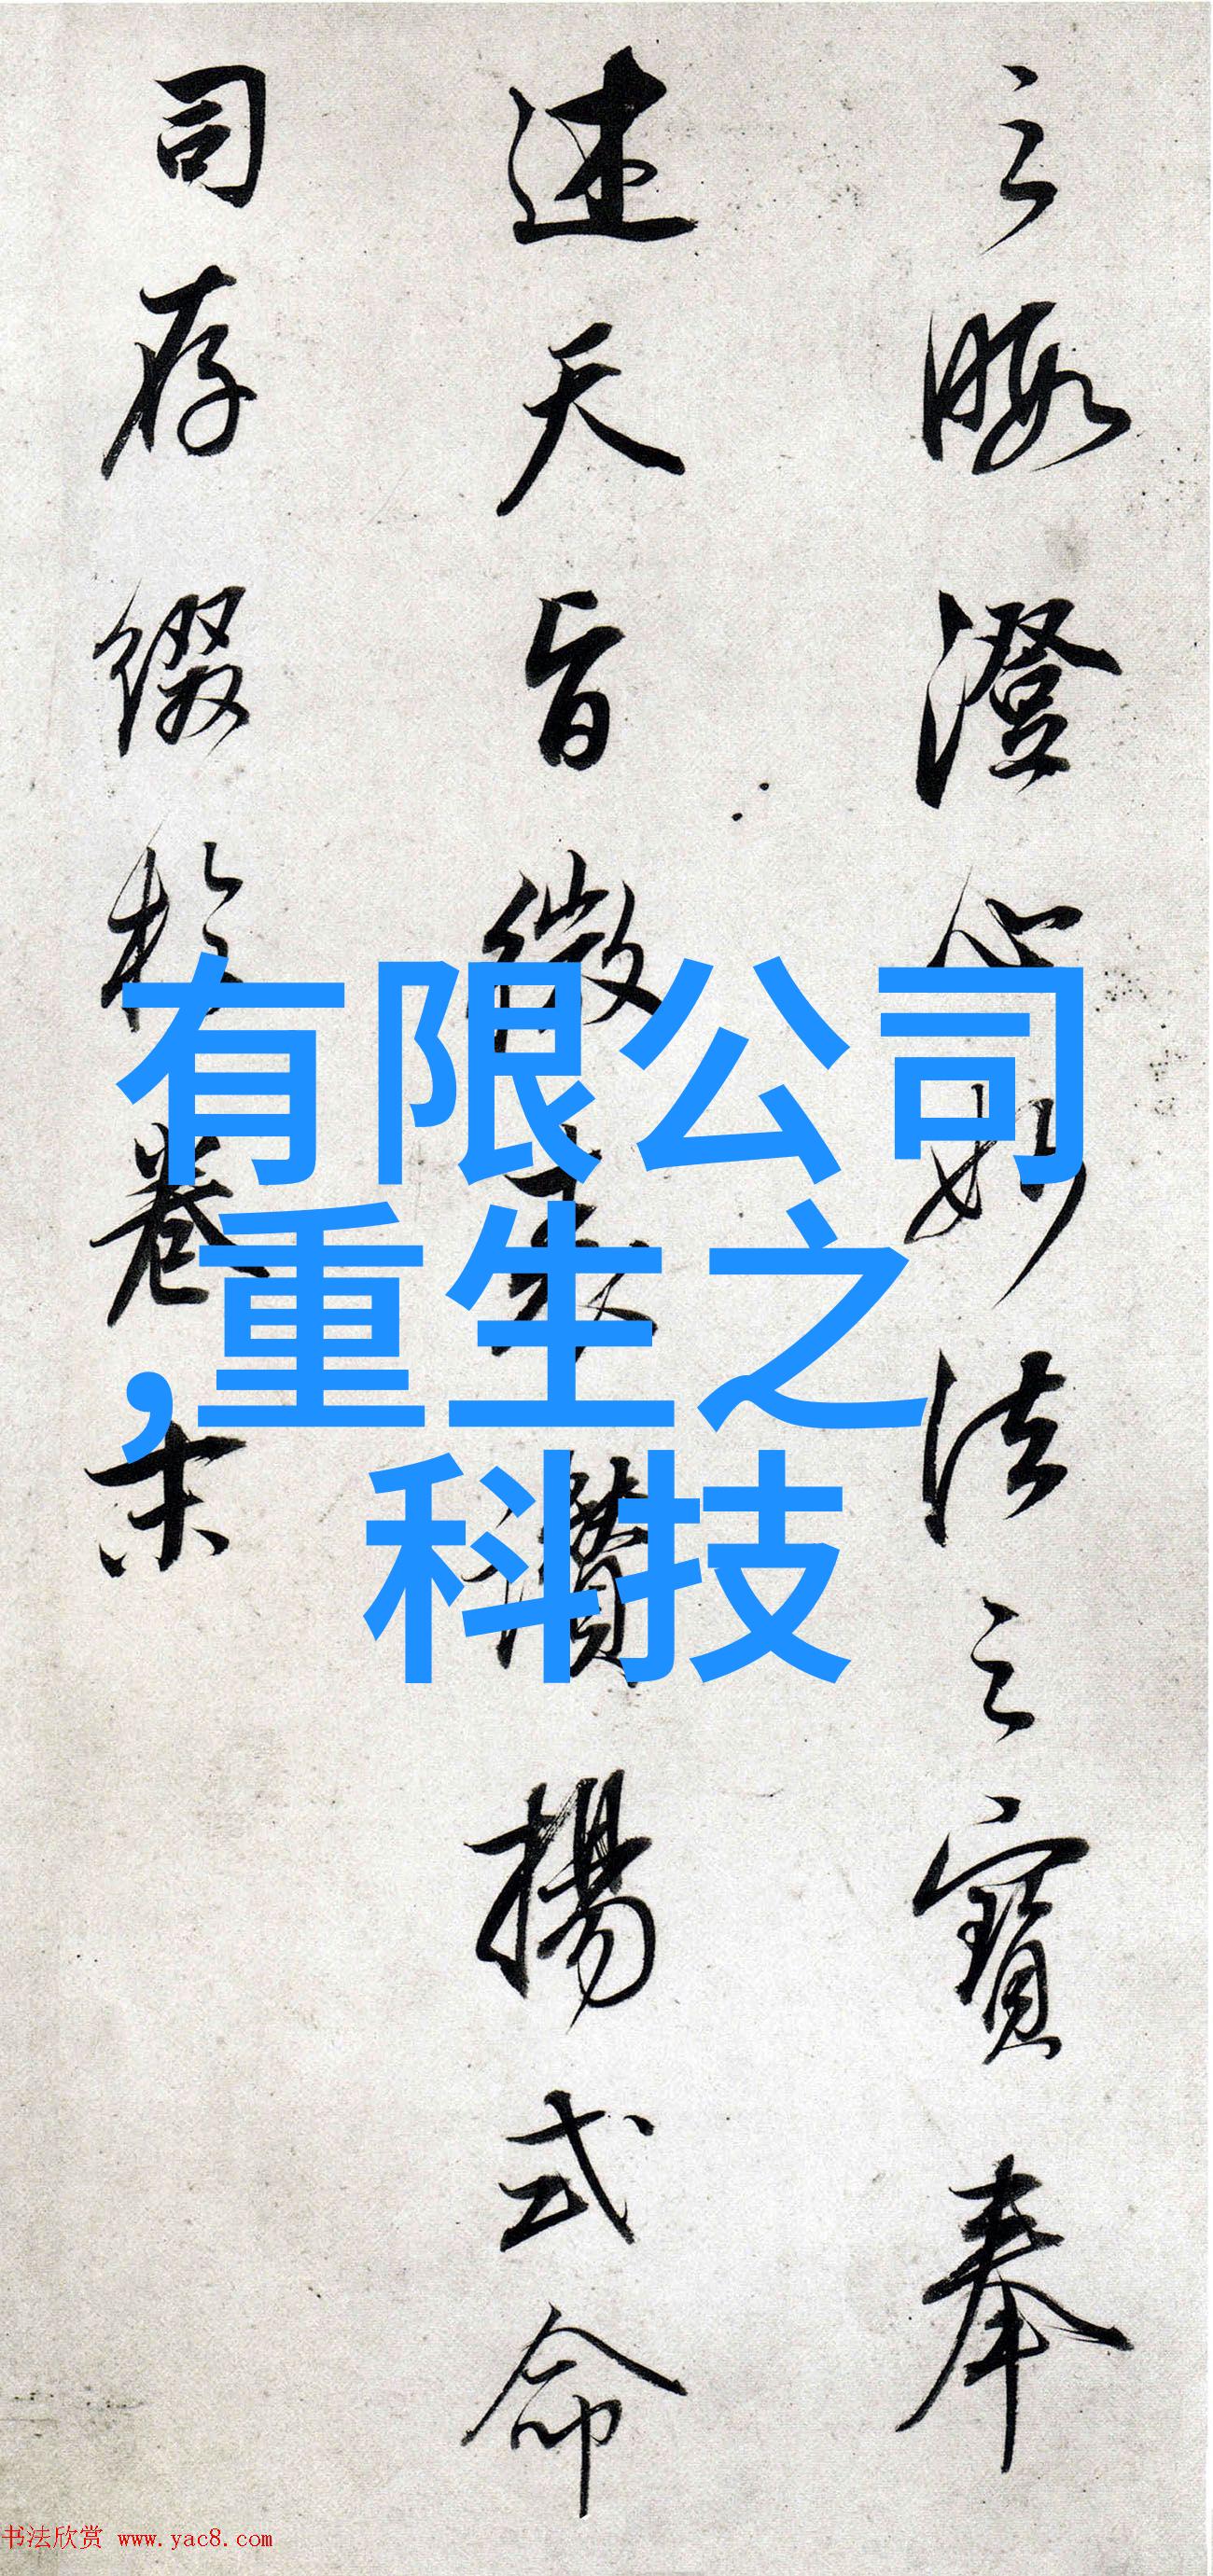 之暇澄心妙法之宝奉
述天旨微表讚揚式命
司存缀於卷末
有限公司
,重生之
科技
书法欣赏 www.yac8.com